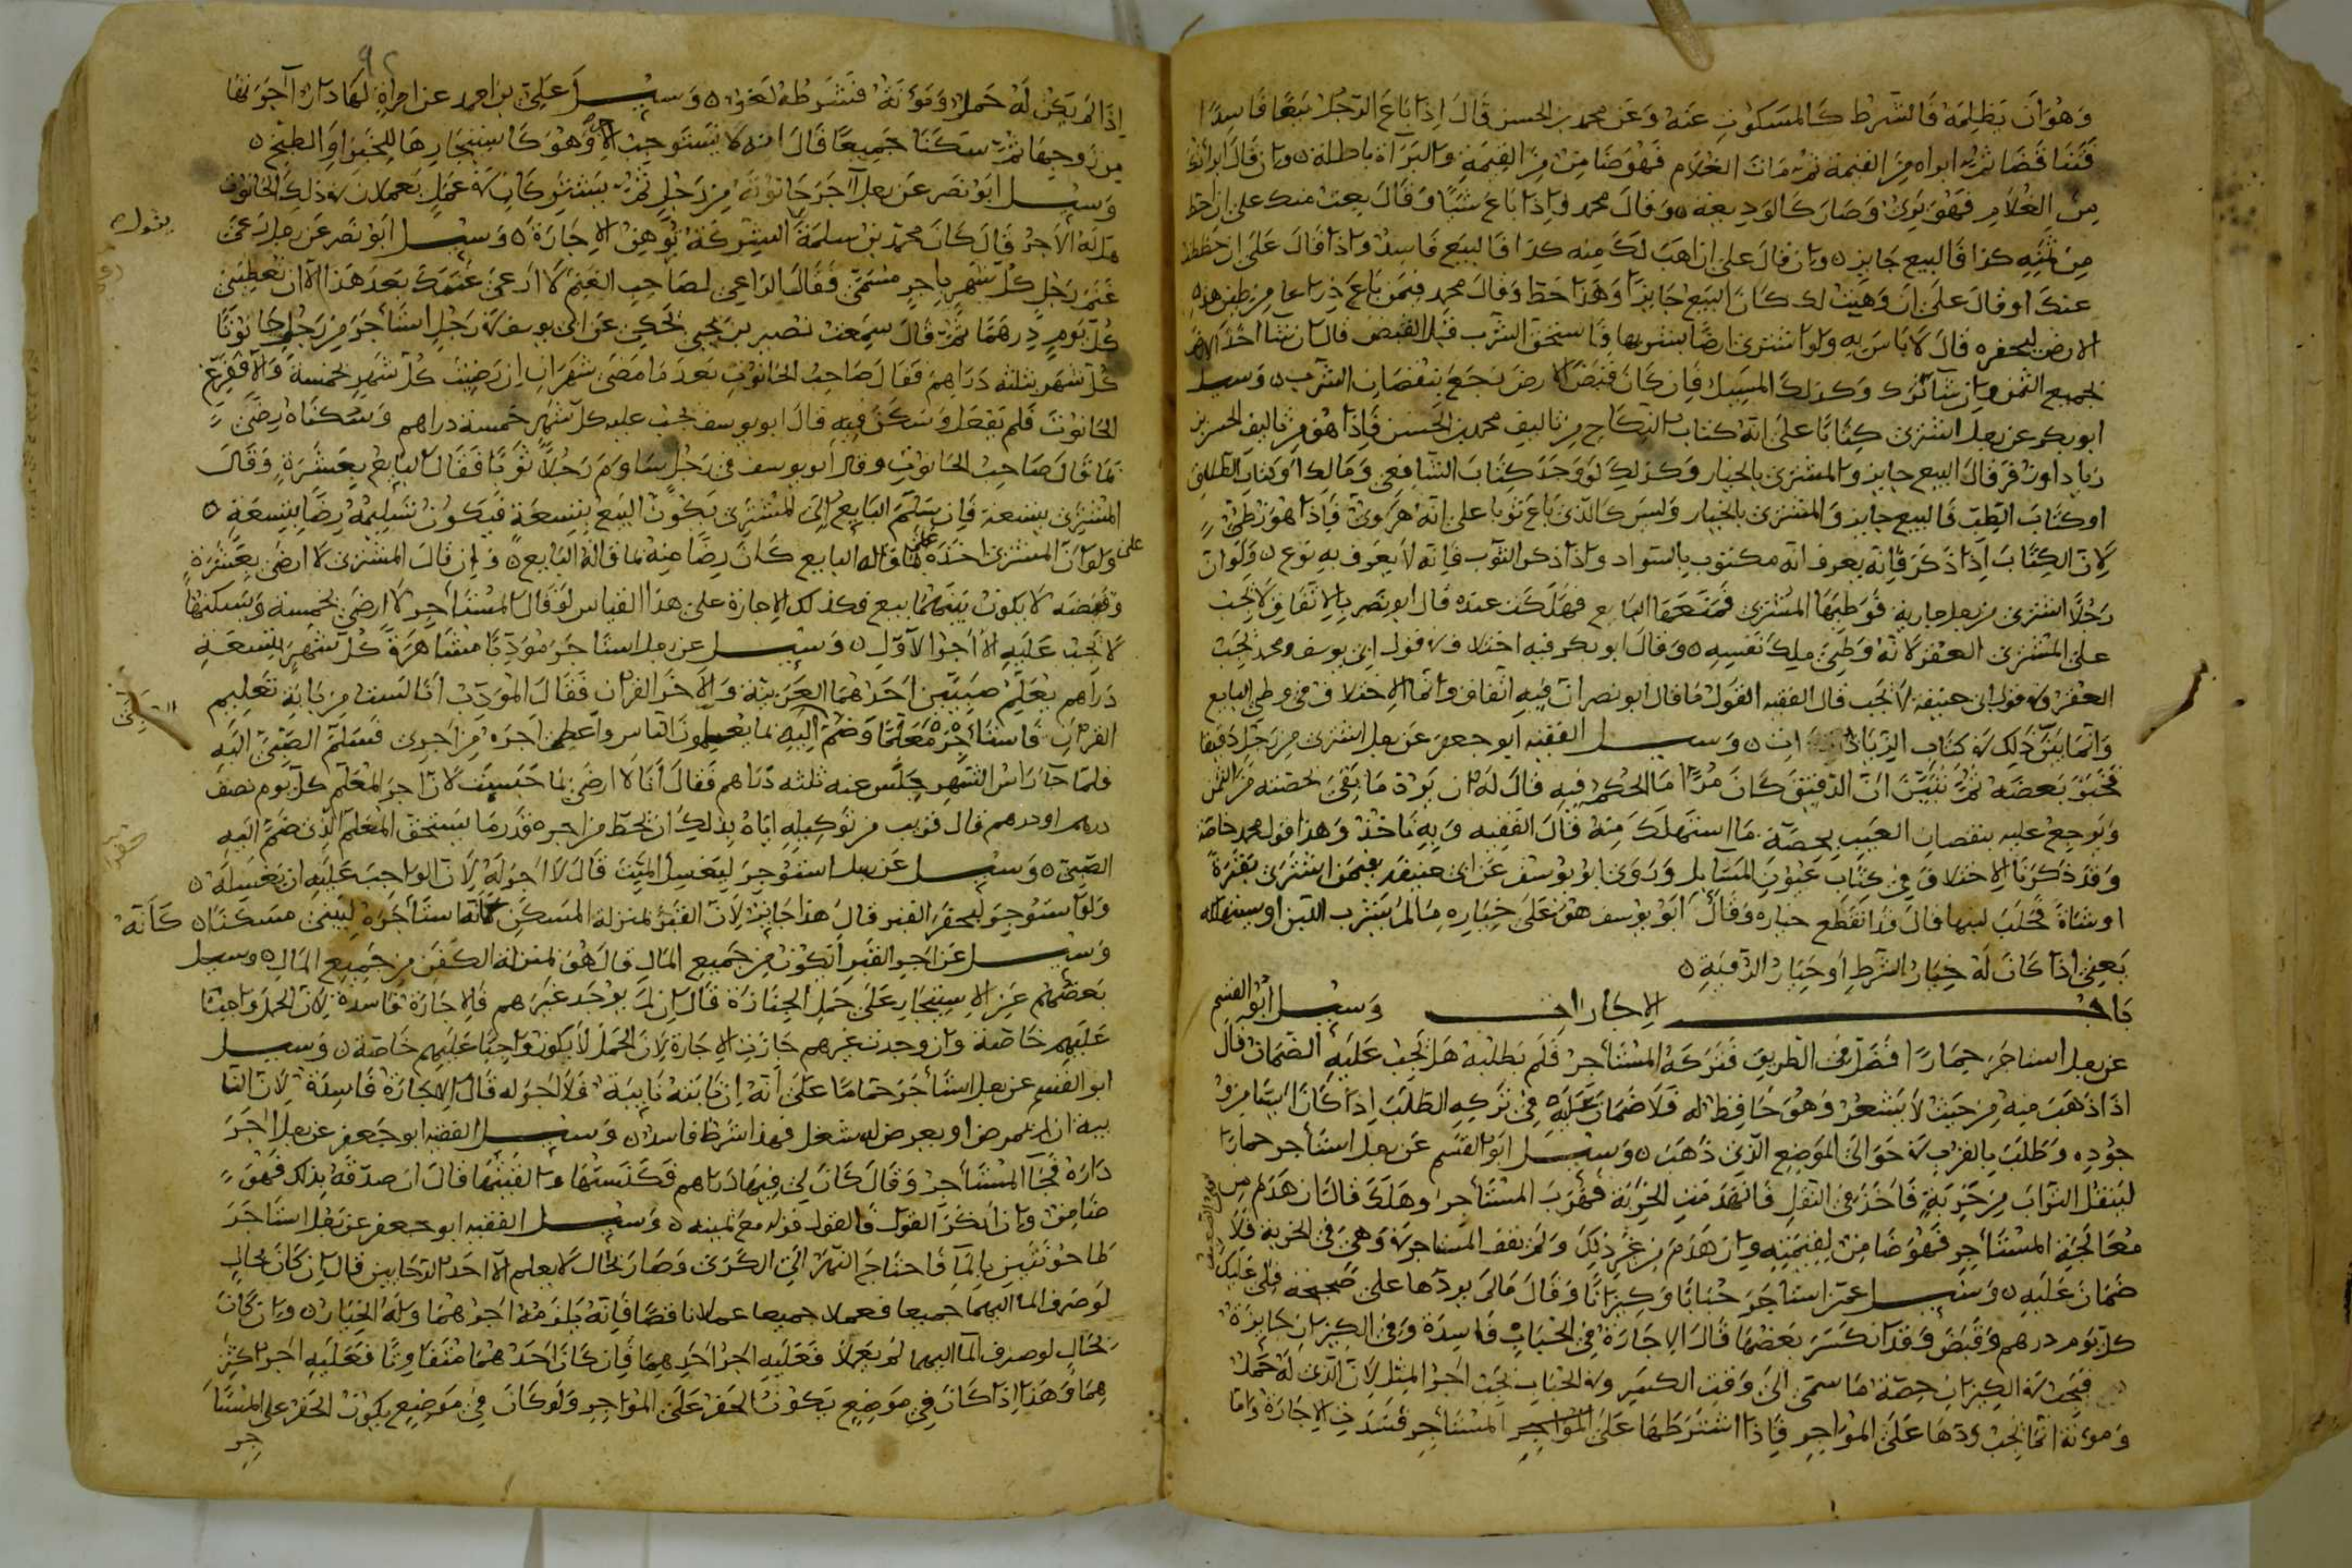 وَهُوَ اَن يَظلِمَهُ فَالشَّرط كَالمَسكُوتِ عَنهُ وَعَن محمد بن الحسن قَالَ اِذَا بَاعَ الرّجُل بَيعًا فَاسِدًا
فَتَنَاقَضَا ثُمَّ ابراه مِنَ القيمة ثم مَاتَ الغلام فَهُوَ ضَامِن مِنَ القِيمَةِ والبَرَآة باطلة وان قَالَ ابراتك
مِنَ الغُلامِ فَهُوَ بَرِئ وَصَارَ كَالوَدِيعَة وَقالَ محمد وَاِذَا بَاعَ شَيًا وَقَالَ بعت منك على ان احط
مِن ثَمَنِهِ كذا فَالبيع جَايز وان قال على ان اهَبَ لَكَ مِنه كذا فَالبيع فَاسِد واذا قَالَ عَلَى ان حططت
عنك او قالَ عَلَى اَن وَهبت لك كَانَ البَيع جَايزًا وَهَذا حَط وَقالَ محمد فيمَن بَاعَ ذِرَاعا مِن طين هذه
الارض ليحفره قَالَ لَا بَاسَ بِه ولو اشترى ارضًا بشربها فَاستحق الشرب قَبلَ القبض قال ان شَا اخَذ الارض
بجميع الثمن وان شَآ تَرَك وَكذلكَ المسِيل فَاِن كَانَ قَبَضَ الارضَ يَرجَع بِنقصَانِ الشرب وَسيل
ابو بكر عن رجل اشترى كِتَابًا على انَّه كتاب النِكَاحِ من تاليفِ محمد بن الحَسن فَاِذَا هُوَ من تاليف الحسن بن
زياد او زفر قَالَ البيع جايز والمشترى بالخيار وَكذلِكَ لَو وَجَدَ كِتَابَ الشافِعى وَمَالِك او كتاب الطلاق
او كتَاب الطِب فَالبيع جايز وَالمشترى بالخيار وَليسَ كَالّذى بَاعَ ثوبا على انه هَرَوىّ فَاِذا هُوَ زطِىّ
لِانَّ الكِتَاب اِذَا ذَكَرَ فَاِنّه يعرف انه مكتوب بالسواد واذا ذكر الثوب فاِنه لَا يعرف به نوع وَلو ان
رَجُلًا اشترى من رجل جارية فَوَطِيَهَا المُشترى فَمَنَعَهَا البَايع فهَلكَت عنده قَال ابو نصر بالاتفَاقِ لَا يجب
على المشترى العقر لانّهُ وَطِئَ مِلك نَفسِهِ وَقالَ ابو بكر فيه اختلاف فى قول ابى يوسف ومحمد يجب
العقر وفى قول ابى حنيفة لا يَجب قال الفقيه القَول مَا قال ابو نصر انّ فِيهِ اتفاق وانّما الاختلاف فى وطى البايع
وَانّما بيّن ذَلك فى كتاب الزيادات وَسيل الفقيه ابو جعفر عَن رجل اشترى مِن رَجل دَقِيقا
فَخَبَزَ بَعضَهُ ثُمَّ تَبَيَّنَ انّ الدّقيق كَانَ مُرًّا مَا الحُكم فِيهِ قَالَ لَه ان يَرد مَا بَقِىَ بحصته مِن الثمن
وَيَرجِعُ عليهِ بنقصانِ العَيبِ بِحصّة مَا استهلكَ مِنهُ قَالَ الفقِيه وَبِهِ نَاخذ وَهذا قول محمد خاصة
وَقَد ذَكرنَا الاختلاف فِى كِتَاب عُيون المسَايل وَرَوى ابو يُوسف عَن ابى حنيفة فيمن اشترى بَقَرَة
او شاةً فَحَلَبَ لبنها قَال قَد انقَطَع خياره وَقَالَ ابو يوسف هُوَ عَلَى خِيَارِه مَا لم يَشرَب اللبن او يستهلكه
يَعنِى اِذَا كَانَ لَهُ خِيَار الشَرطِ اَو خِيَار الرّويَةِ
بَاب الاِجَارات وَسُيل اَبُو القسم
عن رجل استاجَرَ حِمَارًا فَضَلَّ فى الطريق فتركَهُ المُستَاجِر فلَم يَطلبهُ هَل يجب عَلَيهِ الضمان قَالَ
اِذَا ذَهَبَ مِنه مِن حَيث لَا يَشعُر وَهُوَ حَافِظ له فَلَا ضَمانَ عَليهِ فِى تَركِه الطلَبَ اِذَا كَانَ ايسًا مِن وُ
جُودِه وَطَلَبَ بِالقرب فى حَوالى المَوضِع الّذى ذَهَبَ وَسيل ابو القسم عَن رجل استَاجر حمارًا
لينقل التُرَابَ مِن خَرِبَةٍ فَاَخَذ فى النّقلِ فَانهَدمت الخَرِبَة فهرَبَ المستَاجر وهَلَكَ قَالَ ان هَدَمَ مِن
مُعَالجَةِ المستَاجِر فَهُوَ ضَامن لِقِيمَتِهِ وان هَدَمَ من غَير ذلِكَ وَلم يَقف المستاجر فيه وَهِىَ فى الخربة فَلَا
ضَمَانَ عَليهِ وَسُيل عمّن استَاجَرَ حُبَابًا وَكِيزَانًا وَقَالَ مَالَم يردّها على صَحيحَة فَلِى عَليكَ
كلّ يوم درهم وَقَبَضَ وَقد انكسَرَ بَعضهَا قَالَ الاجَارَة فِى الحُبَابِ فَاسِدَة وَفى الكِيزَانِ جَايزَة
فيجب فى الكِيزانِ حِصَّة مَا سمّى الى وَقتِ الكسر وفى الحُبَاب يَجب اَجر المِثل لِانّ الّذى لَهُ حَمل
وَمونة انّما يجب ردّهَا عَلَى المؤاجر فَاِذَا اشتَرَطهَا عَلى المستَاجِر فَسَدت الاجَارَة وَامّا
٩٢
اِذَا لَم يَكن لَهُ حَمل وَمَؤنَة فَشَرطه لغو وَسيل عَلِىّ بن احمد عن امراةٍ لهَا دَار آجرَتها
مِن زوجِهَا ثمّ سَكنَا جَميعًا قَالَ انّه لَا يَستَوجب الاجر وَهُوَ كَاستيجَارِهَا للخبز اوِ الطبخ
وَسيل ابو نصر عَن رجل اجَرَ حَانُوتَه مِن رَجلٍ ثمّ يشتركَانِ فى عَمَل يَعملان فى ذلك الحانوت
هل له الاجر قَالَ كَانَ محمد بن سَلمَة الشركة تُوهِن الاجَارَة وَسيل ابو نَصر عَن رجل رَعى
غنَم رَجل كلّ شهر باجرٍ مسَمّى فَقَالَ الراعى لصَاحبِ الغنم لَا ارعى غَنَمك بَعد هَذا الا ان تعطينى
كُلّ يَومٍ دِرهَمًا ثُمّ قَالَ سَمِعت نصير بن يحيى يحكى عَن ابى يوسف فى رَجل استاجَرَ مِن رَجل حَانوتًا
كلّ شهر بثلثه دَرَاهِم فَقَالَ صَاحِبُ الحَانوتِ بَعدَ مَا مَضى شهرَان اِن رَضيت كلّ شهرٍ بخمسة وَالا فَفَرّغ
الحَانوت فَلَم يَفعَل وَسَكَن فيه قَالَ ابو يوسف يجب عليه كل شهر خمسة دراهم وَسكنَاه رِضًى
بمَا قَالَ صَاحِبُ الحَانوتِ وقال ابو يوسف فى رَجل سَاوَمَ رَجلًا ثَوبًا فقَالَ البايع بِعَشرةٍ وَقَالَ
المشترى بتسعة فَاِن سَلّمَ البَايع اِلى المشترِى يكون البَيع بِتِسعَة فَيَكون تَسلِيمُهُ رِضًا بِتسعَةٍ
ولو انّ المشترى اخَذه على ما قَاله البايع كَانَ رِضًا مِنه بما قَالهُ البَايع وَاِن قَالَ المشترى لا ارضى بعَشرة
وَقَبَضَه لا يكون بَينهمَا بيع فكذلك الاجارة على هذا القياس لو قالَ المُستَاجِر لَا ارضى بخمسة وَيَسكنهَا
لَا يجب عَليهِ الا الاجر الاوّل وَسُيل عن رجل استاجَر مُؤدّبًا مشَاهَرَةً كُلّ شهر بتسعَةِ
دَرَاهم يُعَلّم صَبيّين اَحَدهُمَا العَرَبيّة وَالاخر القران فَقَالَ المؤدّب اَنَا لست مِن بَابَةِ تَعليم
القران فَاستَأجر مُعَلّمًا وَضمّ اليهِ بما يَعملون النَّاس واعطى اجرَه مِن اجرى فَسَلّم الصَّبىّ الَيه
فلمّا جآ رَاسُ الشهر حَبَسَ عنه ثلثه دَرَاهم فَقَالَ اَنَا لَا ارضَى بمَا حَبَست لانّ اجر المُعَلّم كلّ يوم نصف
درهم او درهم قال قريب من توكِيلِهِ ايّاهُ بِذلِكَ ان يحط من اجره قدر مَا يستحق المُعَلم الّذى ضمّ اليه
الصَّبى وَسُيل عَن رجل استُوجِرَ لِيغسِل الميّت قَالَ لَا اجرَ لَه لِانّ الواجبَ عَليهِ ان يَغسِلَه
وَلو استُوجِرَ ليحفرَ القبر قَالَ هذا جَايز لِانّ القبر بمنزلة المَسكن كَانه استَاجَرَه لِيبنى مسكنًا
وَسُيل عَن اَجرِ القَبرِ ايَكون مِن جَميعِ المَال قَالَ هُوَ بمنزلة الكَفَنِ مِن جَميع المَال وسيل
بَعضهم عَن الاستيجَار عَلى حَمل الجنازَة قَالَ ان لم يوجَد غيرهم فَالاجَارة فَاسدة لِانّ الحمل وَاجب
عَليهم خَاصّة وان وجدت غيرهم جَازت الاجَارة لانّ الحَمل لَا يكون وَاجبًا عَليهم خَاصّة وَسيل
ابو القسم عن رجل استَاجَرَ حَمّامًا عَلى اَنّهُ اِن نَابَتهُ نَايِبَة فَلَا اجرَ له قَالَ الاجَارَة فَاسِدَة لانّ النا
يبة ان لم تمرض او يعرض له شغل فهذا شرط فاسد وَسيل الفقيه ابو جَعفر عن رجل اجَرَ
دَارَهُ فجَآ المستَأجِر وَقَالَ كَانَ لِى فِيهَا دَرَاهم فكنستهَا والقيتهَا قَالَ ان صدّقهُ بذلك فهُوَ
ضَامن وان انكَرَ القول فالقول قوله مَع يمينه وَسيل الفقيه ابو جعفر عن رَجل استَاجَرَ
طَاحونَتين بالمآ فَاحتاجَ النهر الى الكَرى وَصَارَ بحَال لَا يعلم الا احَد الرّحَايين قَالَ اِن كَانَ بحَالٍ
لَو صَرف الما اليهمَا جميعا فعملا جميعا عملا ناقصًا فَاِنّه يَلزَمهُ اَجرهُمَا وَلَهُ الخِيَار وَان كَانَ
بحَالٍ لو صرف المآ اليهما لم يعملا فَعَليهِ اجر احَدِهمَا فَاِن كَانَ اَحَدهُمَا مُتفَاوِتًا فَعَليهِ اَجر اكثر
هِمَا وَهَذَا اِذَا كَانَ فِى مَوضِعٍ يَكون الحَفر عَلَى المؤاجرِ وَلَو كَانَ فِى مَوضِع يكون الحَفر على المُستَا
جر